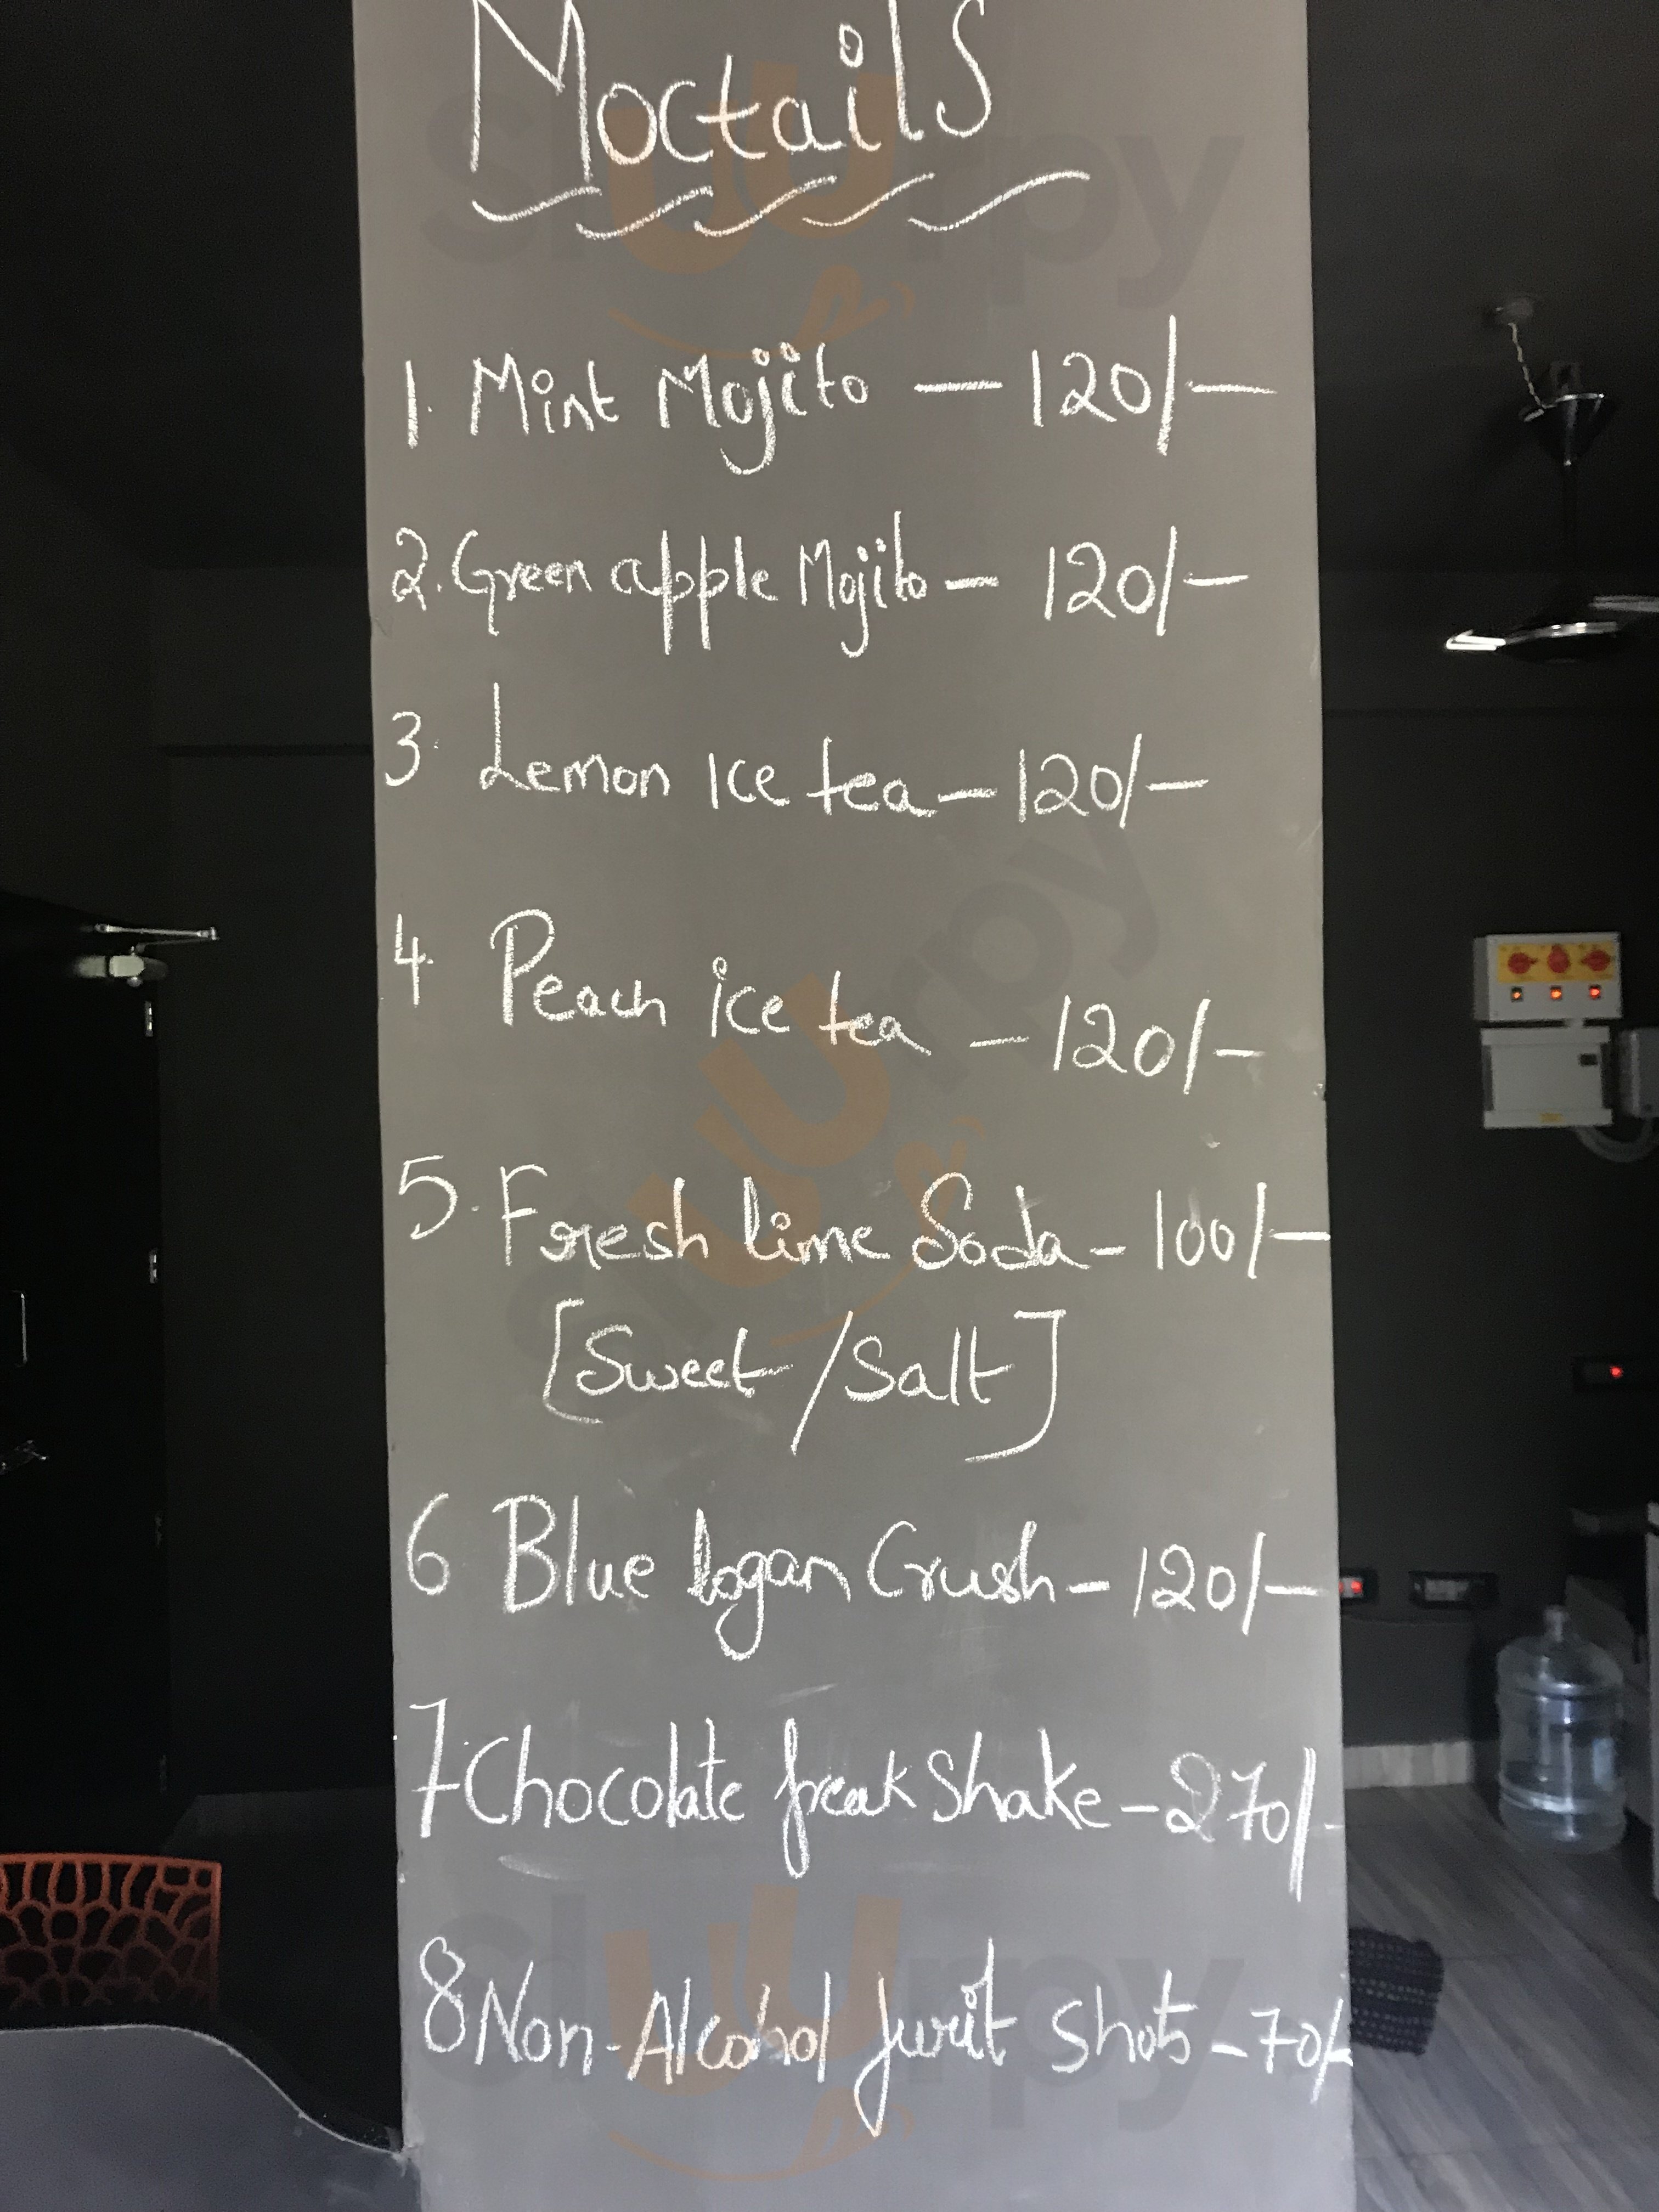 Moctails
1. Mint Mojito — 120/—
2. Green apple Mojito — 120/—
3. Lemon Ice tea — 120/—
4. Peach ice tea — 120/—
5. Fresh lime Soda — 100/—
[Sweet/Salt]
6 Blue logan Crush — 120/—
7. Chocolate freak Shake — 270/-
8 Non-Alcohol fruit Shots — 70/-
sluurpy
sluurpy
sluurpy